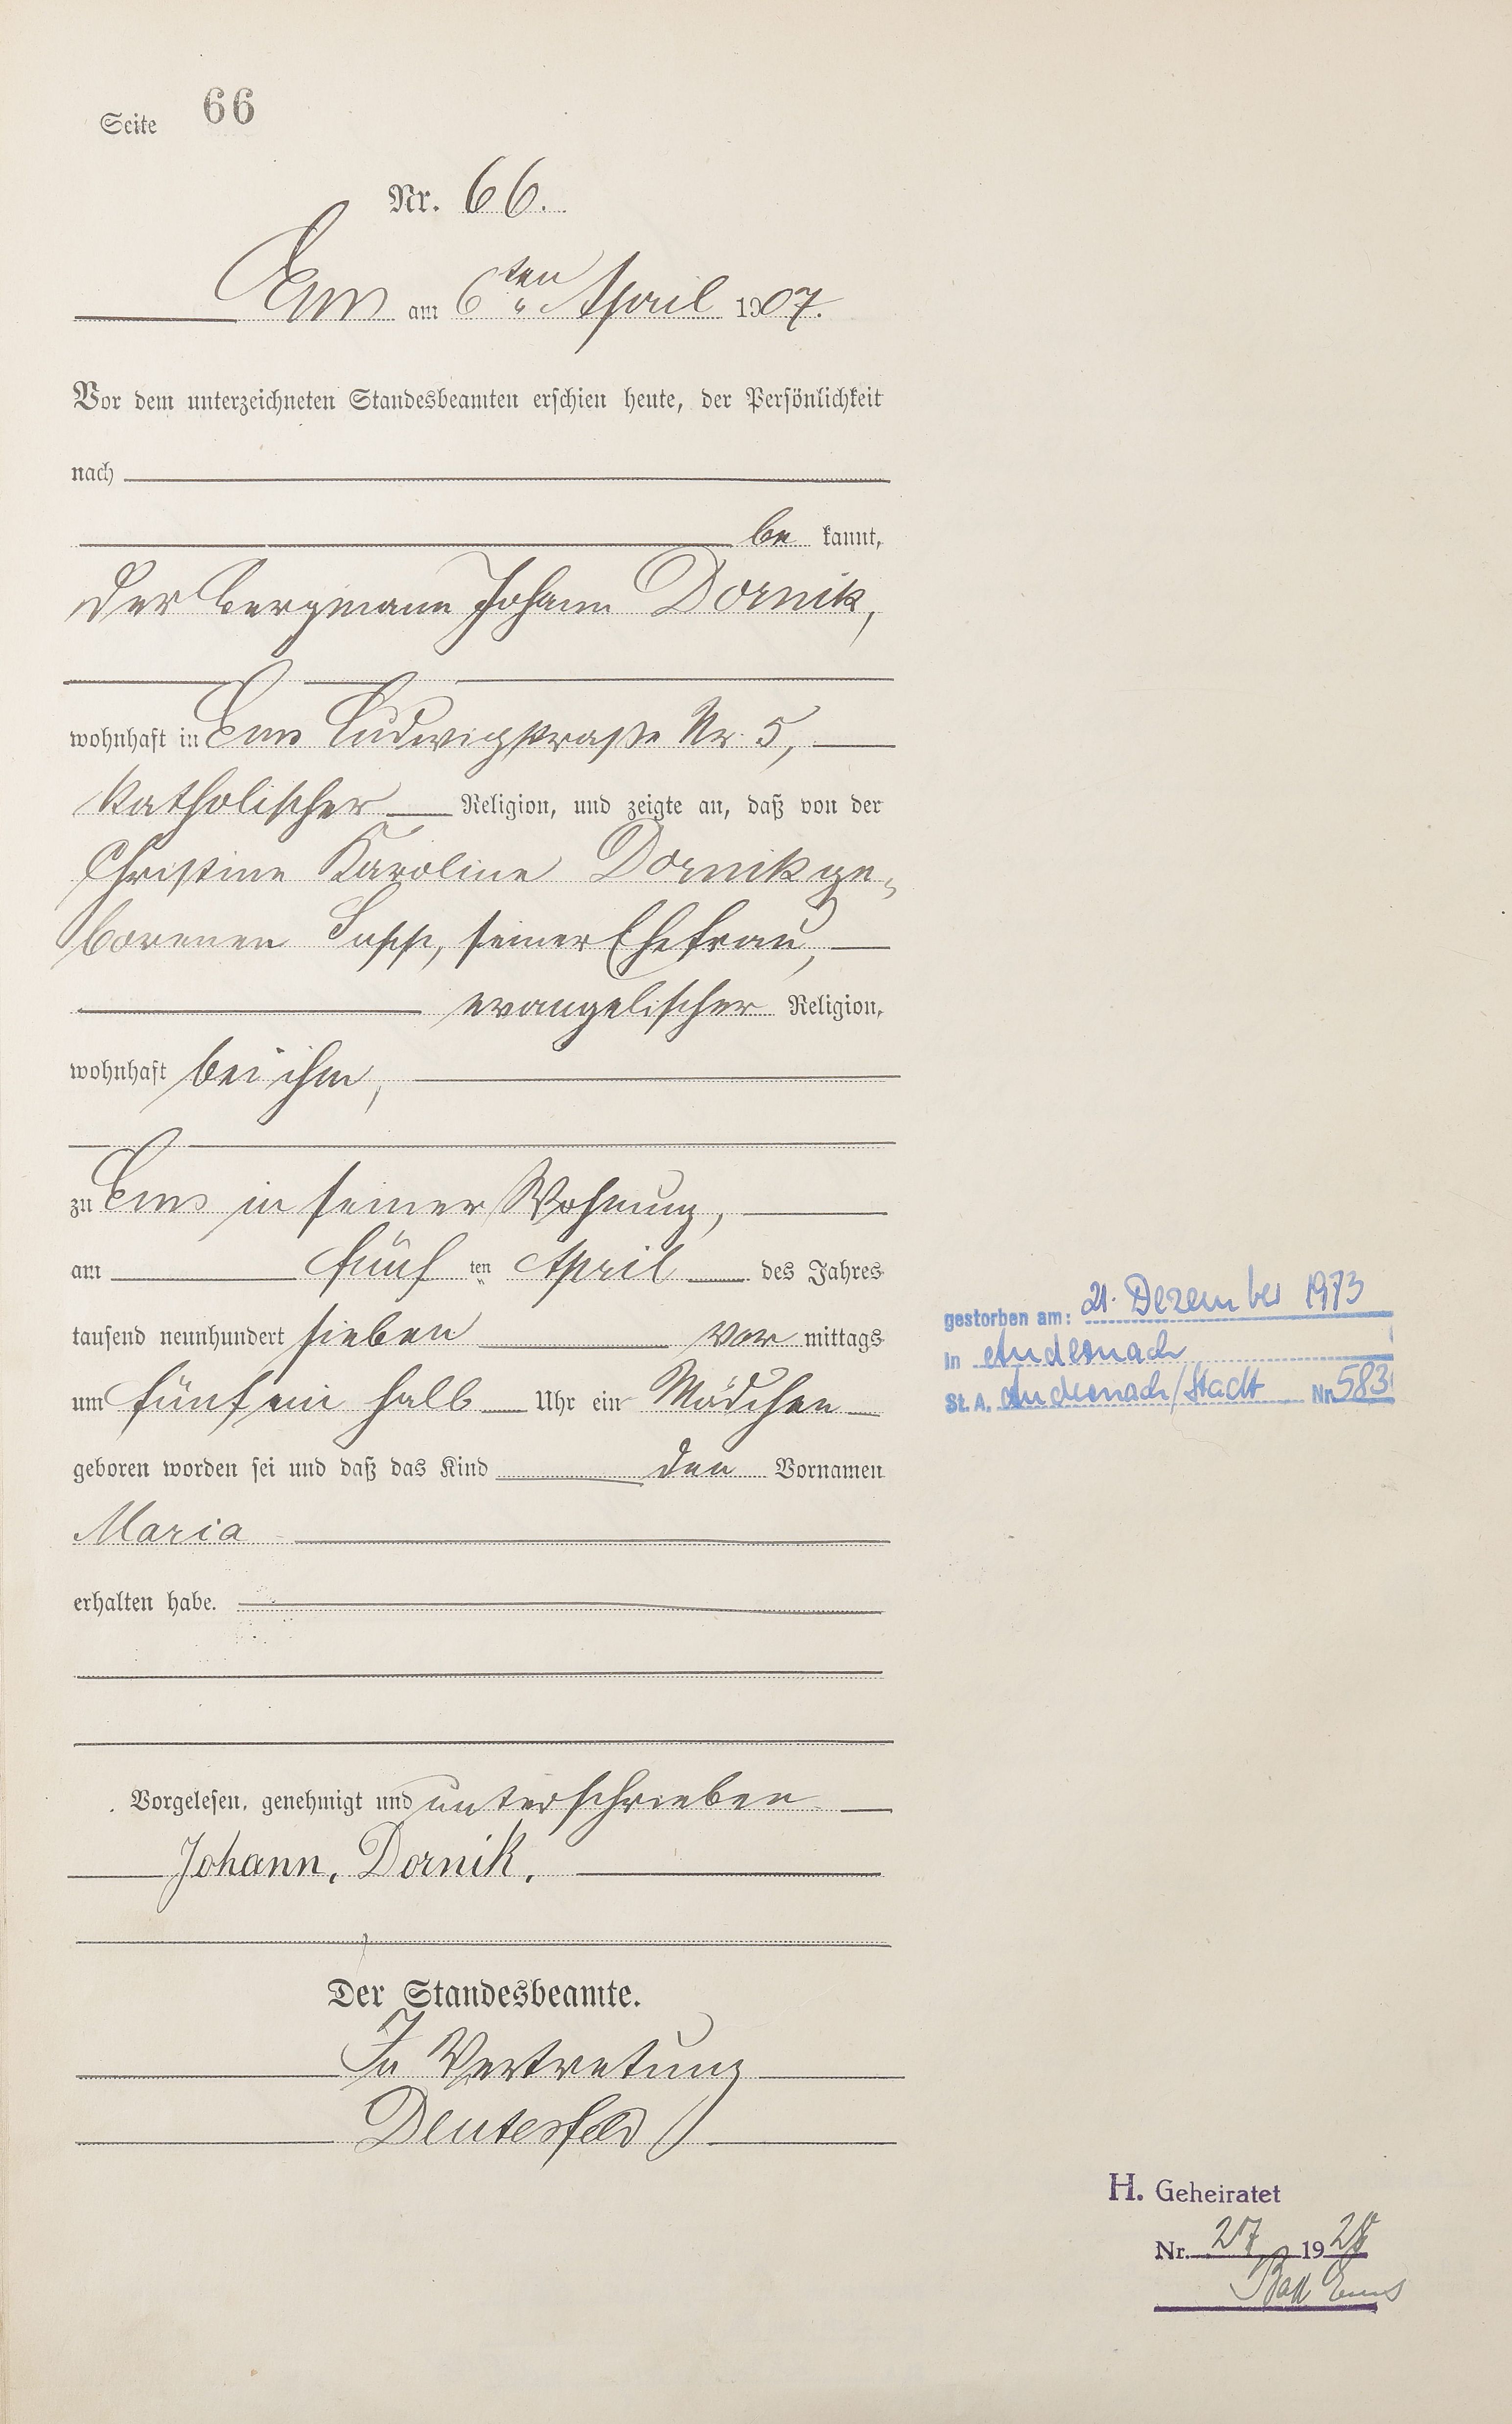 Seite 66
Nr. 66.
Ems am 6ten April 1907.
Vor dem unterzeichneten Standesbeamten erschien heute, der Persönlichkeit
nach
be kannt,
der Bergmann Johann Dornik,
wohnhaft in Ems Ludwigstraße Nr. 5,
katholischer Religion, und zeigte an, daß von der
Christine Karoline Dornik ge-
borenen Sapp, seiner Ehefrau,
evangelischer Religion,
wohnhaft bei ihm,
zu Ems in seiner Wohnung,
am fünf ten April des Jahres
tausend neunhundert sieben vor mittags
um fünf ein halb Uhr ein Mädchen
geboren worden sei und daß das Kind den Vornamen
Maria
erhalten habe.
Vorgelesen, genehmigt und unterschrieben
Johann, Dornik.
Der Standesbeamte.
In Vertretung
gestorben am: 21. Dezember 1973
in Andernach
St. A. Andernach/Stadt Nr. 583
H. Geheiratet
Nr. 27 19
Bad Ems